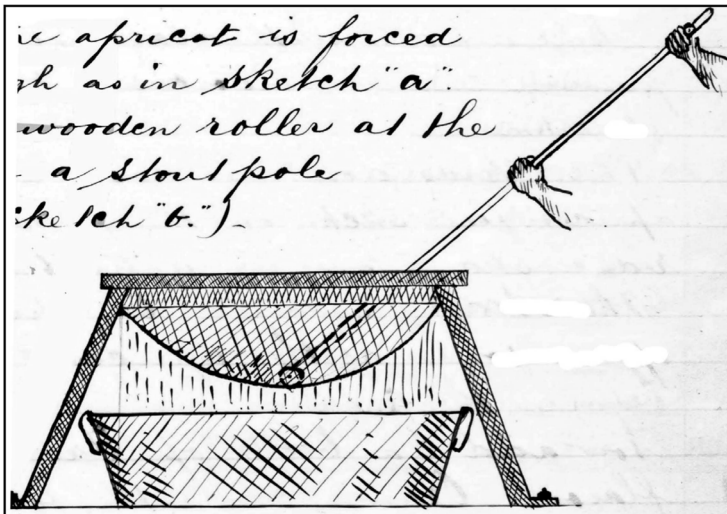 e apricot is forced
gh as in sketch "a".
wooden roller at the
a stout pole
sketch "b.").